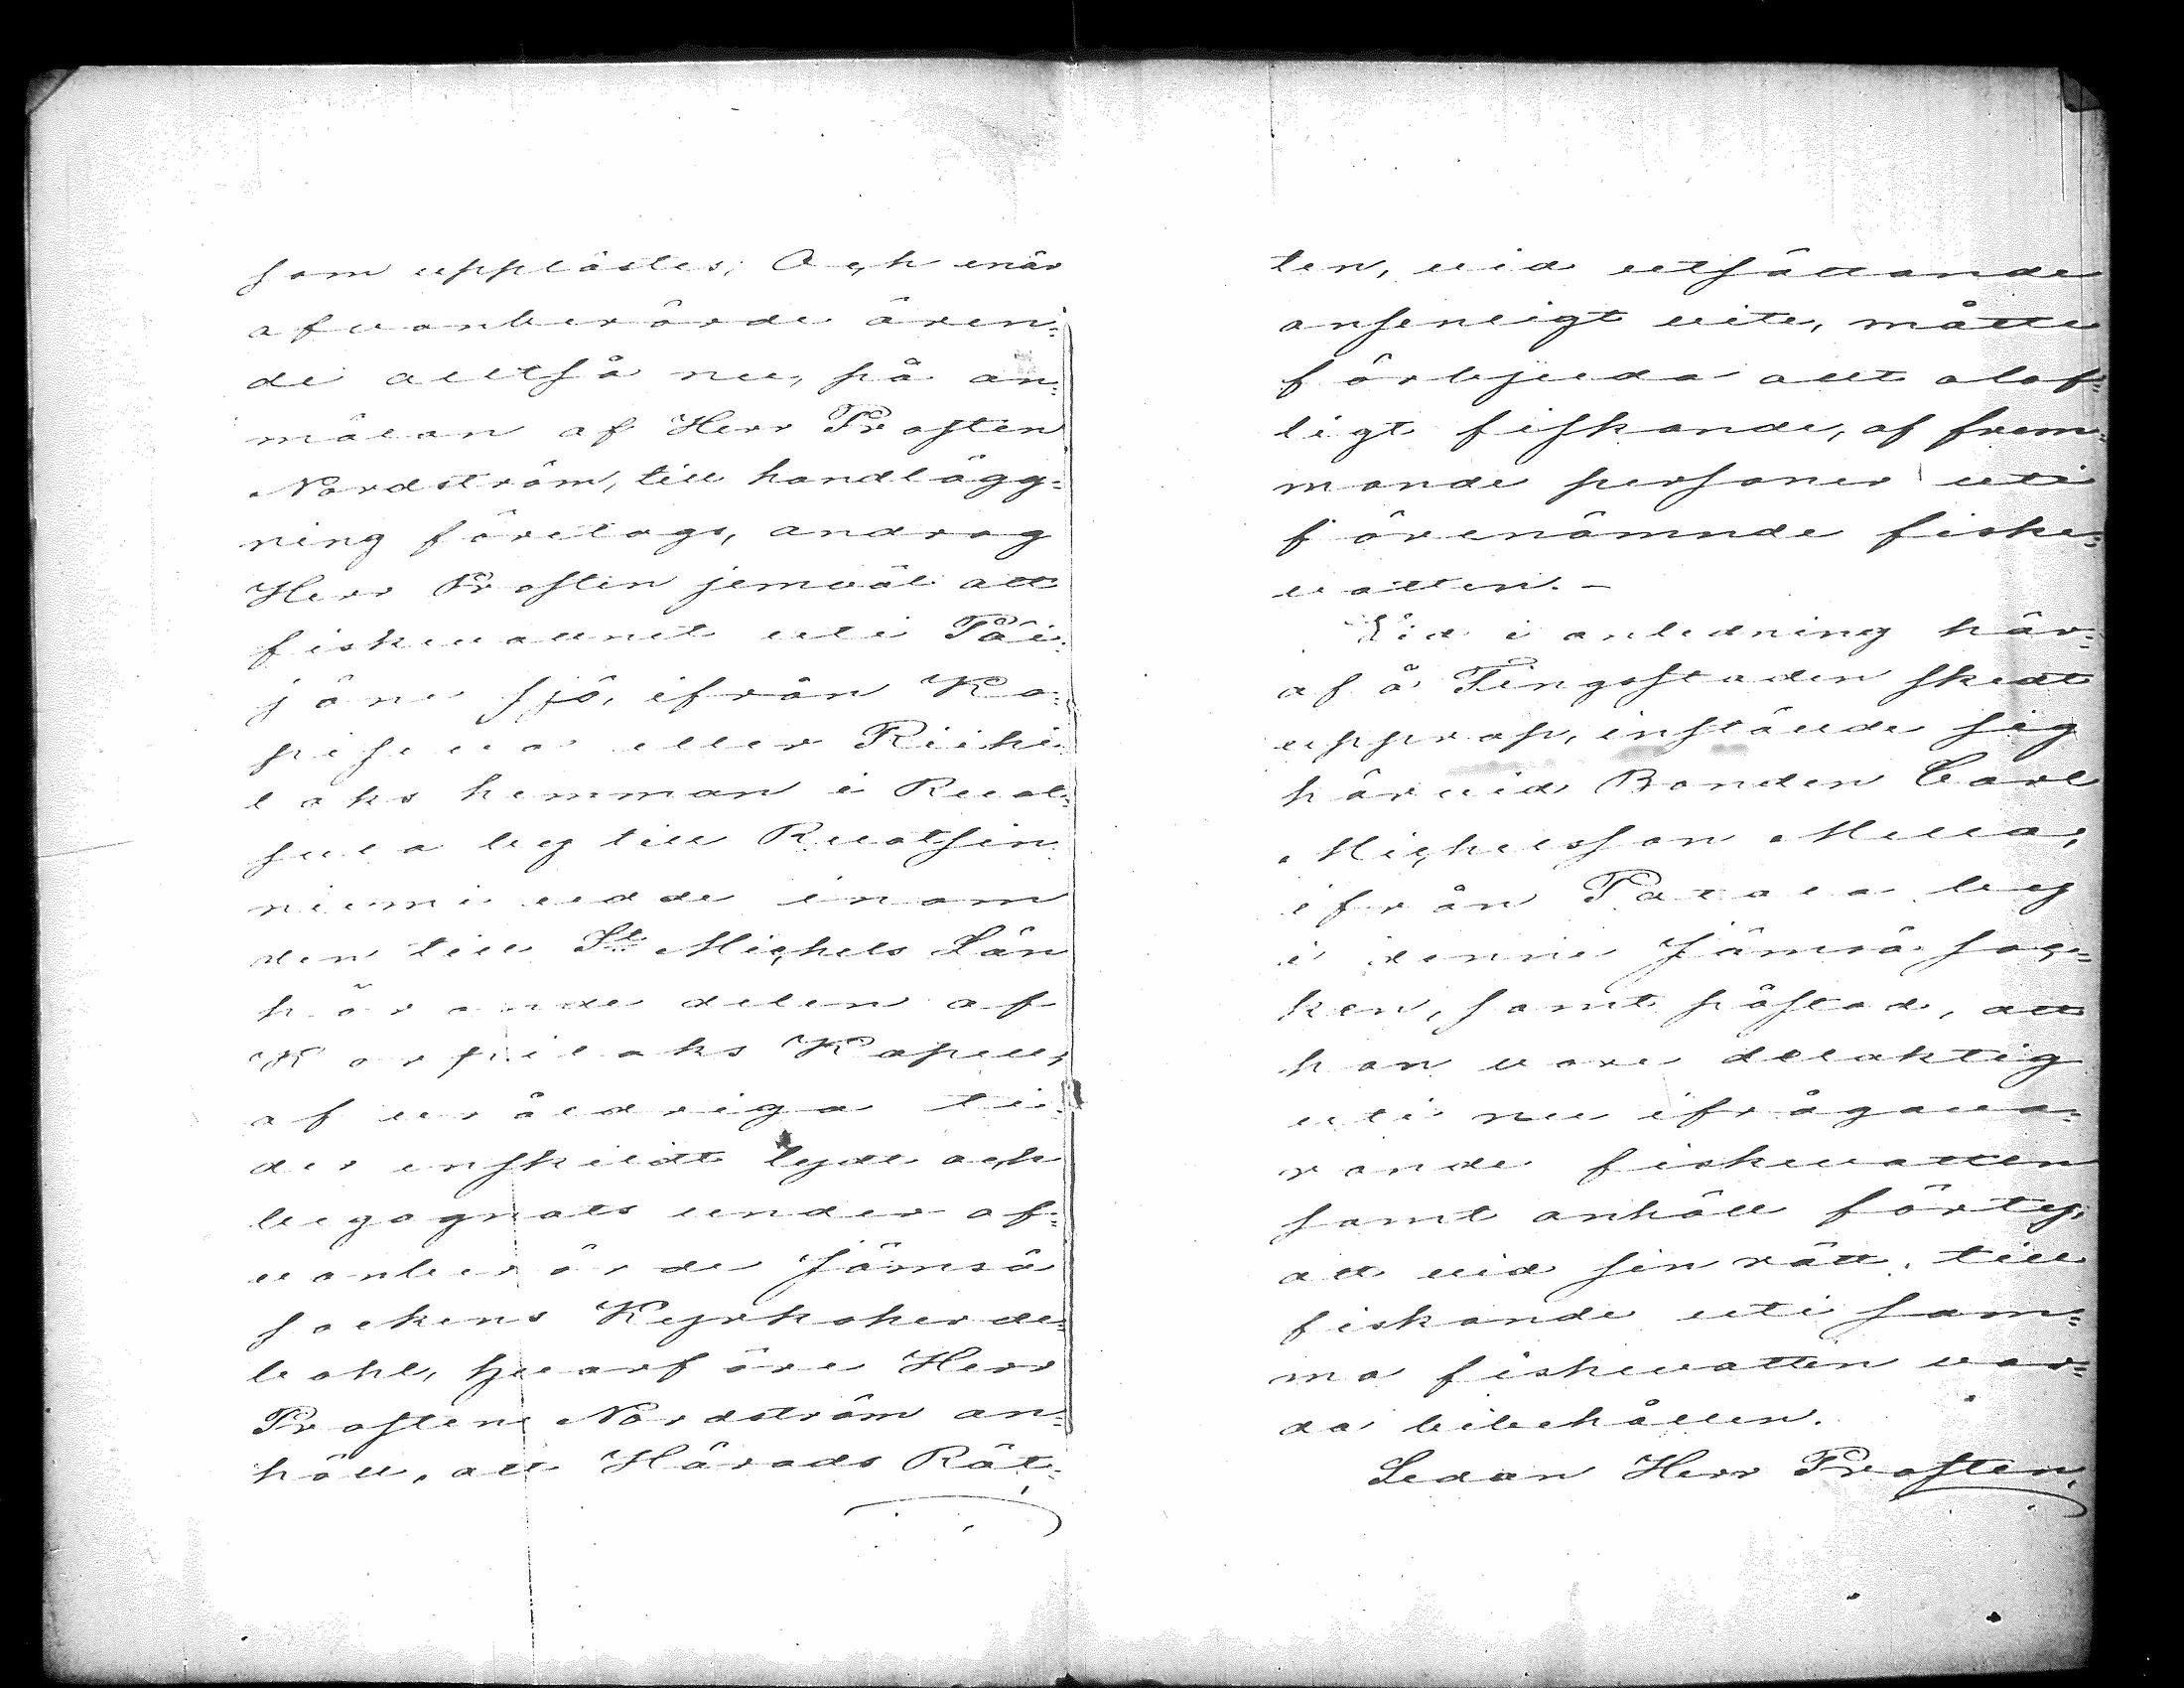 som upplästes; Och enär
afvanberörde ären=
de alltså nu, på an=
mälan af Herr Prosten
Nordström, till handlägg=
ning företags, androg
Herr Prosten jemväl att
fiskevattnet uti Päi=
jäne sjö, ifrån Ka=
piseva eller Riihi
laks hemman i Ruol=
sula by till Ruotsin
niemi udde inom
den till St Michels Län
hörande delen af
Korpilaks Kapell,
af uråldriga ti=
der enskildt lydt och
begagnats under of=
vanberörde Jämsä
sockens Kyrkoherde=
bohl, hvarföre Herr
Prosten Nordström an=
höll, att Härads Rät=
ten, vid utsättande
ansenligt vite, måtte
förbjuda allt olof=
ligt fiskande, af frem=
mande personer uti
förenämnde fiske=
vatten.–
Vid i anledning här=
af å Tingsstaden skedt
upprop, instälde sig
härvid Bonden Carl
Michelsson Mella,
ifrån Patala by
i denne Jämsä soc=
ken, samt påstod, att
han vore delaktig
uti nu ifrågava=
rande fiskevatten
samt anhöll förty,
att vid sin rätt till
fiskande uti sam=
ma fiskevatten var=
da bibehållen.
Sedan Herr Prosten,